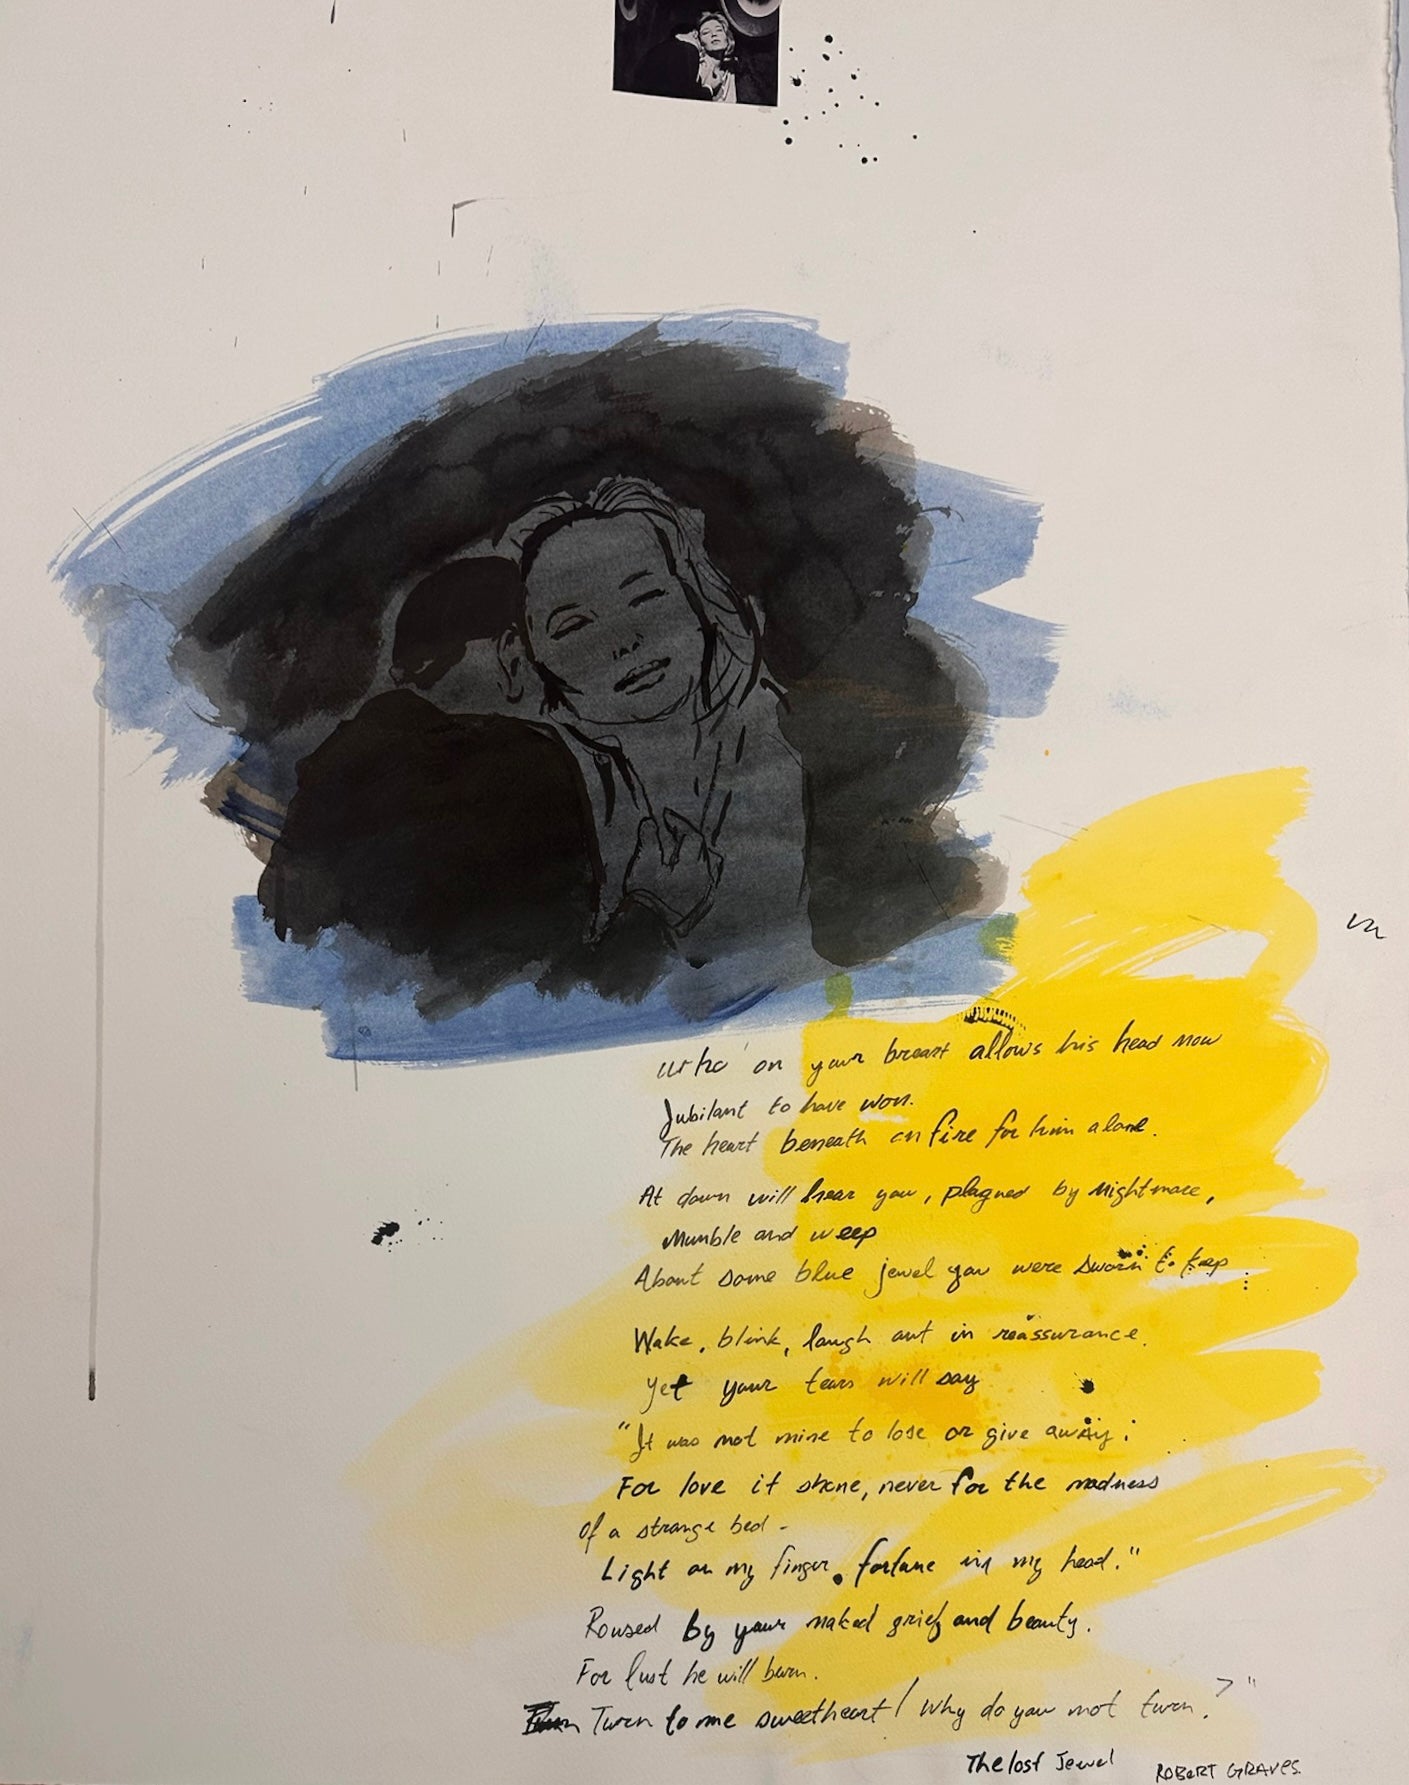 Who on your breast allows his head now
Jubilant to have won.
The heart beneath on fire for him alone.
At dawn will hear you, plagued by nightmare,
Mumble and weep
About some blue jewel you were sworn to keep
Wake, blink, laugh out in reassurance.
Yet your tears will say
"It was not mine to lose or give away;
For love it shone, never for the madness
Of a strange bed -
Light on my finger. fortune in my head."
Roused by your naked grief and beauty.
For lust he will burn.
Turn to me sweetheart! Why do you not turn?"
The lost Jewel
ROBERT GRAVES.